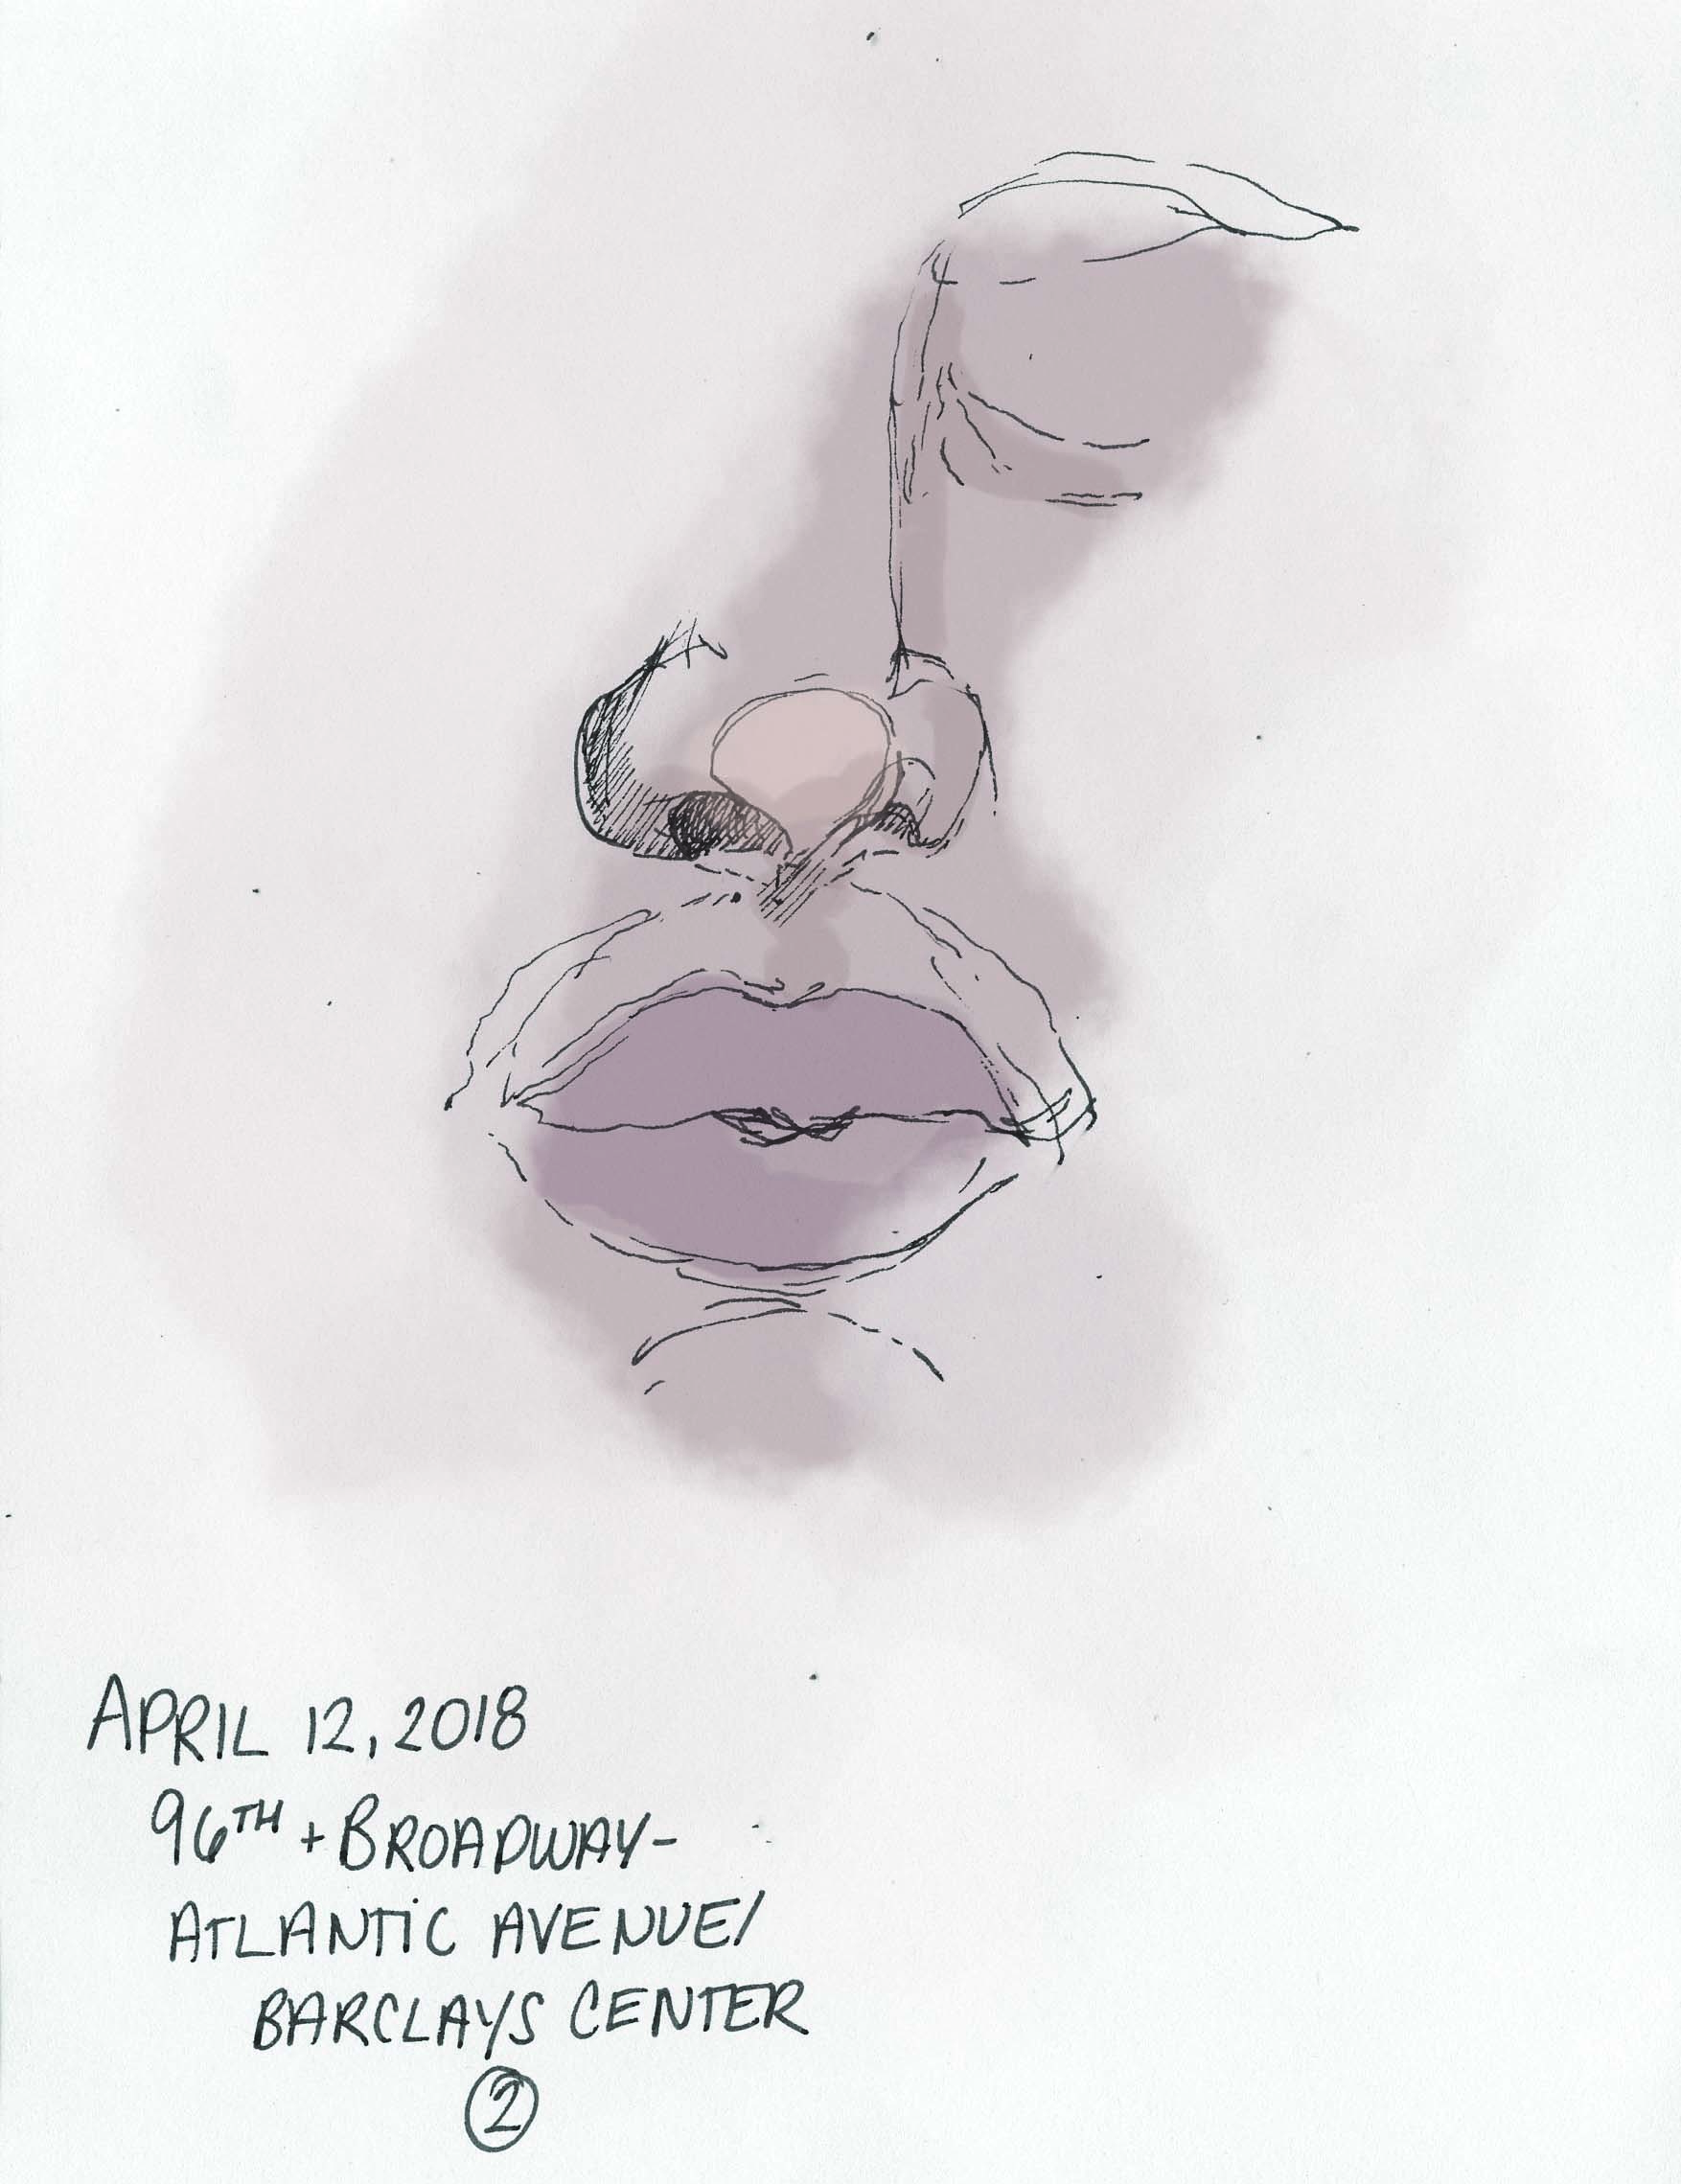 APRIL 12, 2018
96TH + BROADWAY-
ATLANTIC AVENUE/
BARCLAYS CENTER
2